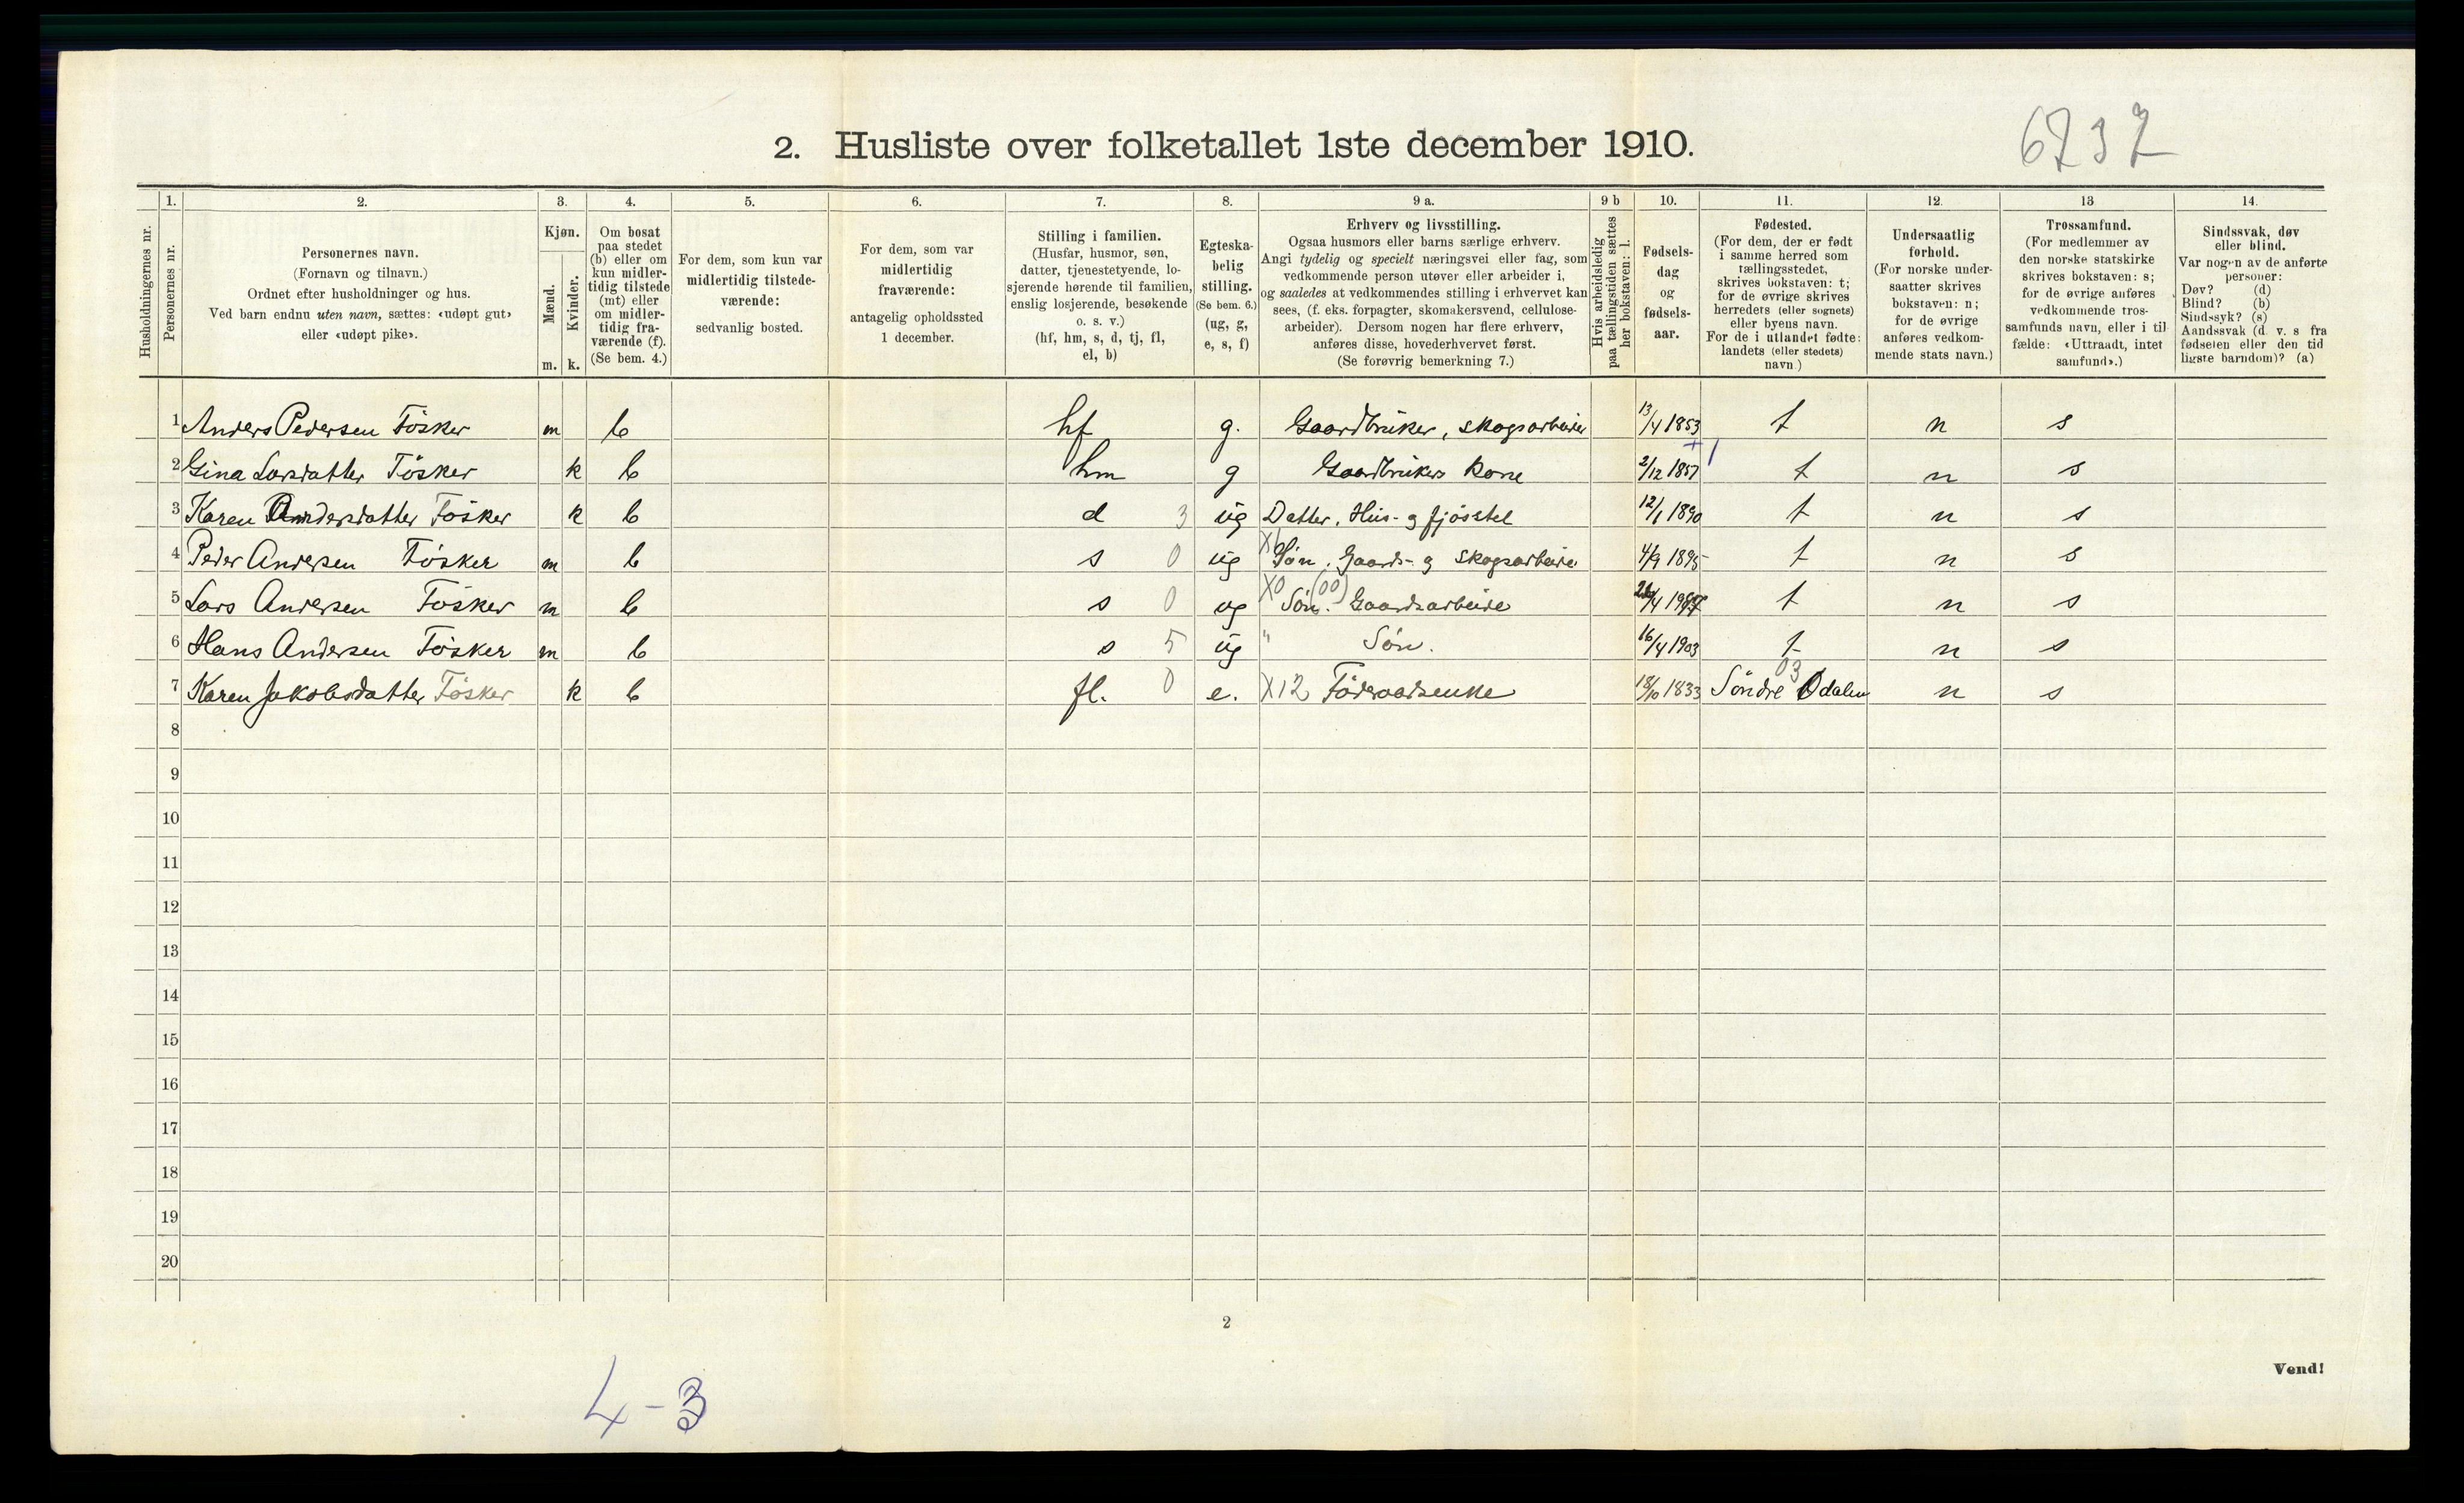 6737
2. Husliste over folketallet 1ste december 1910.
Husholdningernes nr.
1. Personernes nr.
2. Personernes navn. (Fornavn og tilnavn.) Ordnet efter husholdninger og hus. Ved barn endnu uten navn, sættes: «udøpt gut» eller «udøpt pike».
3. Kjøn. Mænd. m. Kvinder. k.
4. Om bosat paa stedet (b) eller om kun midlertidig tilstede (mt) eller om midlertidig fraværende (f). (Se bem. 4.)
5. For dem, som kun var midlertidig tilstedeværende: sedvanlig bosted.
6. For dem, som var midlertidig fraværende: antagelig opholdssted 1 december.
7. Stilling i familien. (Husfar, husmor, søn, datter, tjenestetyende, losjerende hørende til familien, enslig losjerende, besøkende o. s. v.) (hf, hm, s, d, tj, fl, el, b)
8. Egteskabelig stilling. (Se bem. 6.) (ug, g, e, s, f)
9 a. Erhverv og livsstilling. Ogsaa husmors eller barns særlige erhverv. Angi tydelig og specielt næringsvei eller fag, som vedkommende person utøver eller arbeider i, og saaledes at vedkommendes stilling i erhvervet kan sees, (f. eks. forpagter, skomakersvend, cellulosearbeider). Dersom nogen har flere erhverv, anføres disse, hovederhvervet først. (Se forøvrig bemerkning 7.)
9 b Hvis arbeidsledig paa tællingstiden sættes her bokstaven: l.
10. Fødselsdag og fødselsaar.
11. Fødested. (For dem, der er født i samme herred som tællingsstedet, skrives bokstaven: t; for de øvrige skrives herreders (eller sognets) eller byens navn. For de i utlandet fødte: landets (eller stedets) navn.)
12. Undersaatlig forhold. (For norske undersaatter skrives bokstaven: n; for de øvrige anføres vedkommende stats navn.)
13 Trossamfund. (For medlemmer av den norske statskirke skrives bokstaven: s; for de øvrige anføres vedkommende trossamfunds navn, eller i tilfælde: «Uttraadt, intet samfund».)
14. Sindssvak, døv eller blind. Var nogen av de anførte personer: Døv? (d) Blind? (b) Sindssyk? (s) Aandssvak (d. v. s. fra fødselen eller den tidligste barndom)? (a)
1 Anders Pedersen Tösker m b hf g. Gaardbruker, skogsarbeider 13/4 1853 t n s
2 Gina Larsdatter Tösker k b hm g Gaardbrukers kone 2/12 1857 t n s
3 Karen Andersdatter Tösker k b d 3 ug Datter. Hus- og fjösstel 12/1 1890 t n s
4 Peder Andersen Tösker m b s 0 ug Sön. Gaards- og Skogsarbeide 4/9 1895 t n s
5 Lars Andersen Tösker m b s 0 ug X0 (00) Sön. Gaardsarbeide /4 t n s
6 Hans Andersen Tösker m b s 5 ug " Sön. 16/4 1903 t n s
7 Karen Jakobsdatter Tösker k b fl. 0 e. X12 Föderaadsenke 18/10 1833 03 Söndre Odalen n s
8
9
10
11
12
13
14
15
16
17
18
19
20
2
Vend!
4-3